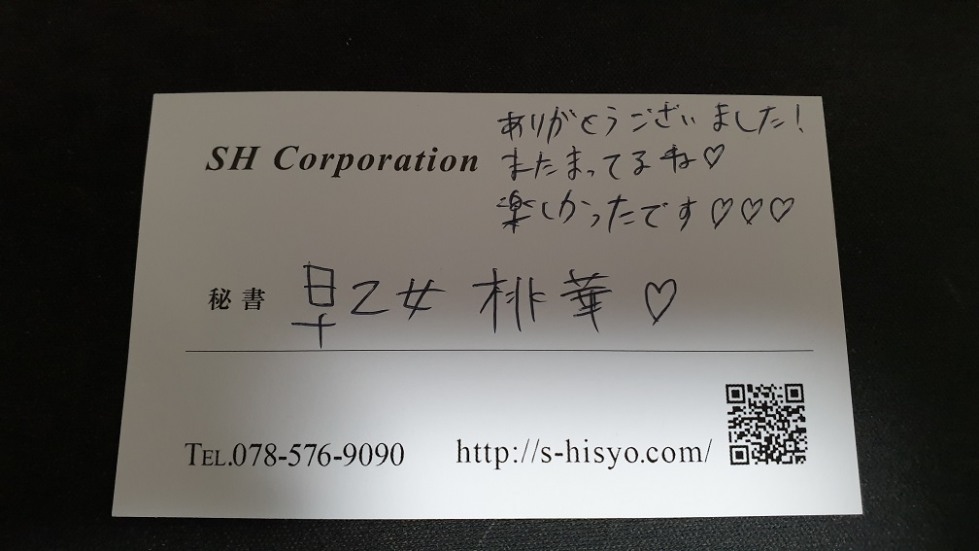 SH Corporation
ありがとうございました!
またまってるね♡
楽しかったです♡♡♡
秘書 早乙女 桃華 ♡
TEL.078-576-9090 http://s-hisyo.com/